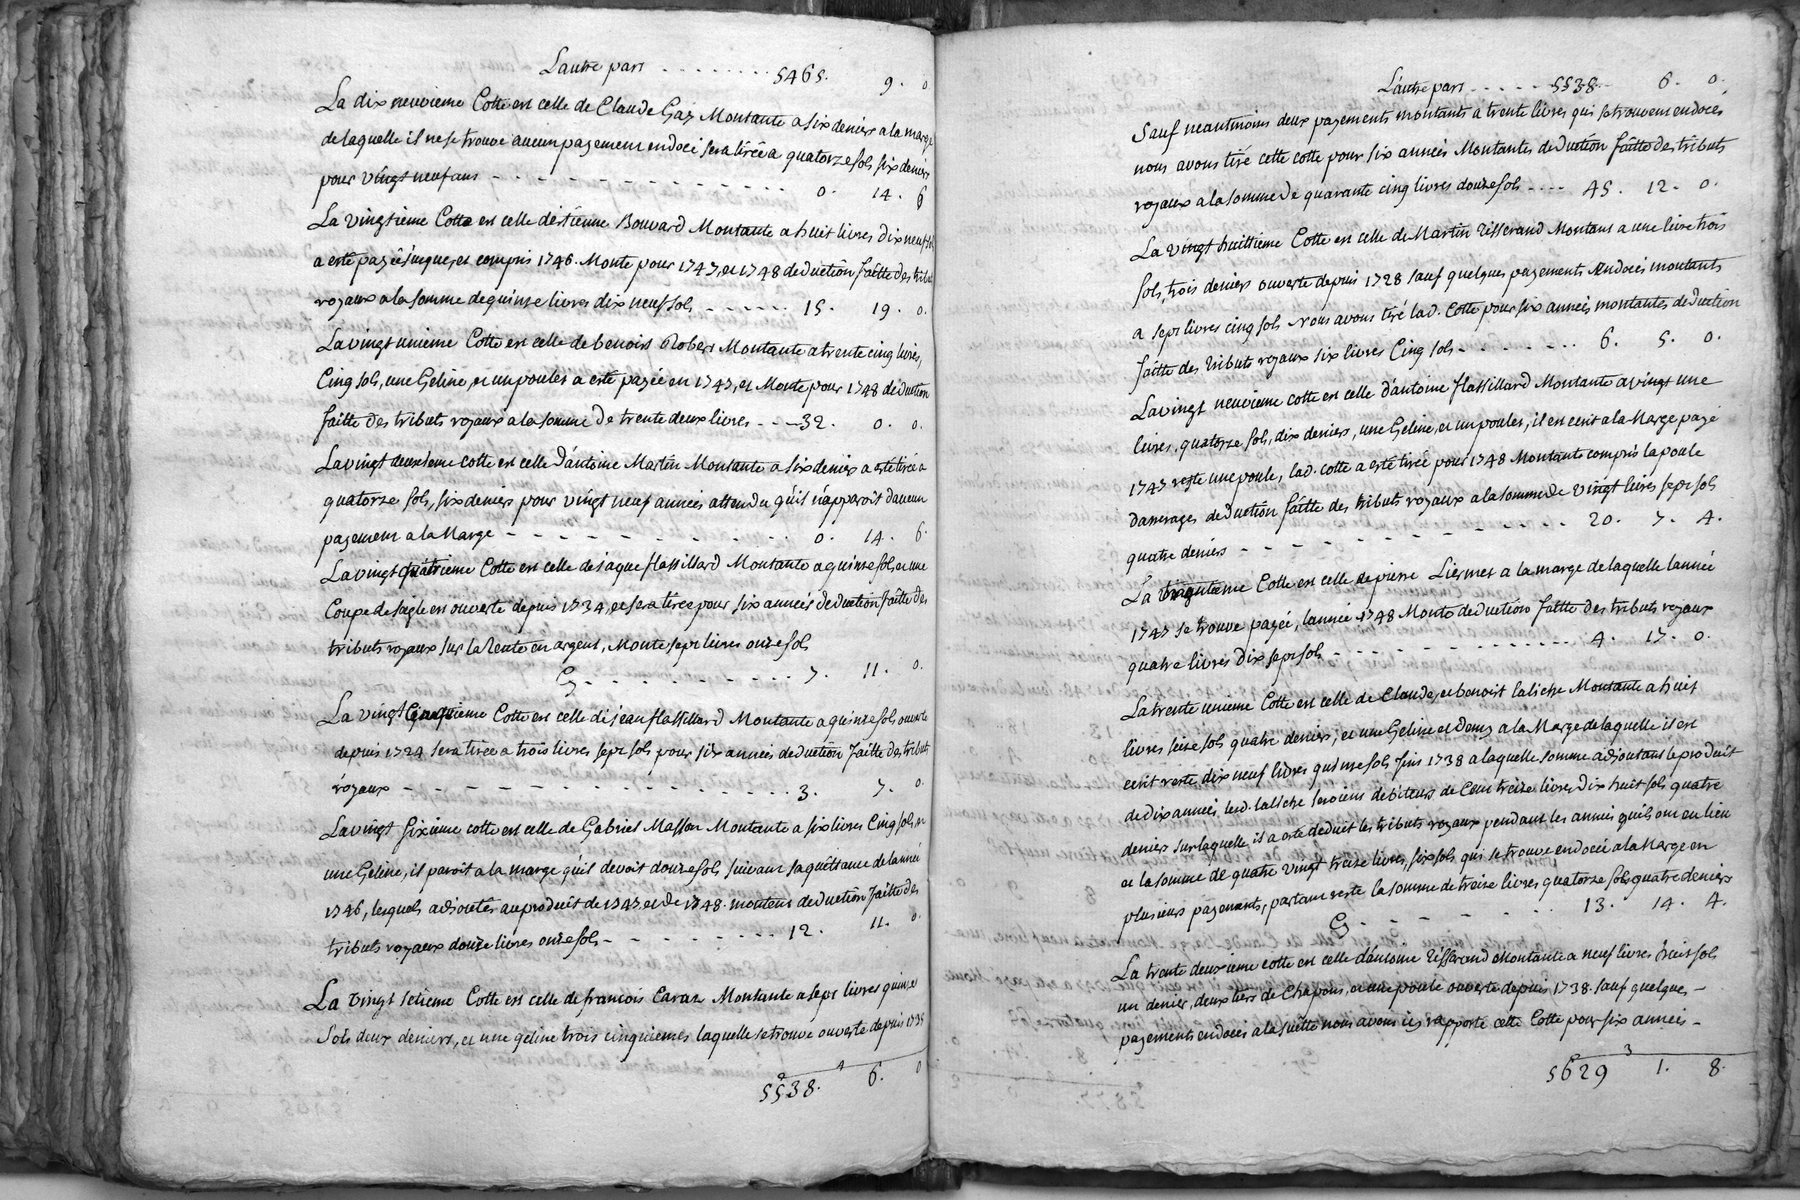 L'autre part - - - - - - - - 5465. 9. 0
La dix neuvieme Cotte est celle de Claude Gaz Montante a six deniers a la marge
de laquelle il ne se trouve aucun payement endocé sera tirée a quatorze sols six deniers
pour vingt neuf ans - - - - - - - - - - - - 0. 14. 6
La vingtieme Cotte est celle d'estienne Bouvard Montante a huit livres dix neuf sols
a esté payée jusques, et compris 1746. Monte pour 1747, et 1748 deduction faitte des tributs
royaux a la somme de quinze livres dix neuf sols - - - - - - 15. 19. 0.
La vingt unieme Cotte est celle de benoist Robert Montante a trente cinq livres,
Cinq sols, une Geline, et un poulet a esté payée en 1747, et Monte pour 1748 deduction
faitte des tributs royaux a la somme de trente deux livres - - - - 32. 0. 0.
La vingt deuxieme cotte est celle d'antoine Martin Montante a six deniers a esté tirée a
quatorze sols, six deniers pour vingt neuf années attendu qu'il n'apparoit d'aucun
payement a la Marge - - - - - - - - - - 0. 14. 6.
La vingt quatrieme Cotte est celle de jaque flassillard Montante a quinze sols, et une
Coupe de seigle est ouverte depuis 1734, et sera tirée pour six années deduction faitte des
tributs royaux sur la Rente en argent, Monte sept livres onze sols
Cy - - - - - - - - - 7. 11. 0.
La vingt Cinquieme Cotte est celle de jean flassillard Montante a quinze sols, ouverte
depuis 1724 sera tirée a trois livres sept sols pour six années deduction faitte des tributs
royaux - - - - - - - - - - - - - - - 3. 7. 0.
La vingt sixieme cotte est celle de Gabriel Masson Montante a six livres Cinq sols, et
une Geline, il paroit a la marge qu'il devoit douze sols suivant sa quittance de l'année
1746, lesquels adjoutés au produit de 1747 et de 1748. montent deduction faitte des
tributs royaux douze livres onze sols - - - - - - - - 12. 11. 0.
La vingt setieme Cotte est celle de francois Caraz Montante a sept livres quinze
Sols deux deniers, et une geline trois cinquiemes laquelle se trouve ouverte depuis 1735
5538. 6. 0
L'autre part - - - - - - 5538. 6. 0.
Sauf neantmoins deux payements montants a trente livres qui se trouvent endocés
nous avons tiré cette cotte pour six années Montantes deduction faitte des tributs
royaux a la somme de quarante cinq livres douze sols - - - - 45. 12. 0.
La vingt huittieme Cotte est celle de Martin Tisserand Montant a une livre trois
sols, trois deniers ouverte depuis 1728 sauf quelques payements endocés montants
a sept livres cinq sols nous avons tiré lad. Cotte pour six années montantes deduction
faitte des tributs royaux six livres Cinq sols - - - - - - - - 6. 5. 0.
La vingt neuvieme cotte est celle d'antoine flassillard Montante a vingt une
livres, quatorze sols, dix deniers, une Geline, et un poulet, il est ecrit a la Marge payé
1747 reste une poule, lad. cotte a esté tirée pour 1748 Montante compris la poule
d'arrerages deduction faitte des tributs royaux a la somme de vingt livres sept sols
quatre deniers - - - - - - - - - - - - - 20. 7. 4.
La trentieme Cotte est celle de pierre Liermet a la marge de laquelle l'année
1747 se trouve payée, l'année 1748 Monte deduction faitte des tributs royaux
quatre livres dix sept sols - - - - - - - - - - - - 4. 17. 0.
La trente unieme Cotte est celle de Claude, et benoist laliche Montante a huit
livres seize sols quatre deniers, et une Geline et demy a la Marge de laquelle il est
ecrit reste dix neuf livres quinze sols fins 1738 a laquelle somme adjoutant le produit
de dix années, lesd. laliche seroient debiteurs de Cent treize livres dix huit sols quatre
deniers sur laquelle il a esté deduit les tributs royaux pendant les années qu'ils ont eu lieu
et la somme de quatre vingt treize livres, six sols qui se trouve endocée a la Marge en
plusieurs payements, partant reste la somme de treize livres quatorze sols, quatre deniers
Cy - - - - - - - - 13. 14. 4.
La trente deuxieme cotte est celle d'antoine Tisserand Montante a neuf livres huit sols
un denier, deux tiers de Chapons, et une poule ouverte depuis 1738. sauf quelques -
payements endocés a la suitte nous avons icy rapporté cette Cotte pour six années -
5629 1. 8.